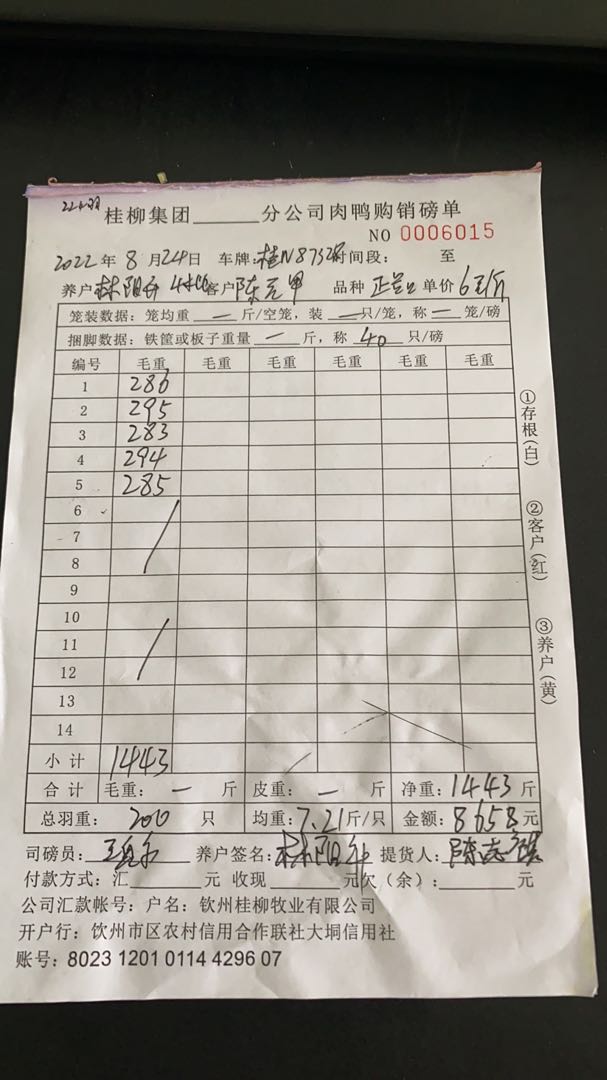 桂柳集团______分公司肉鸭购销磅单
NO 0006015
2022年 8 月24日 车牌: 桂N 时间段: 至
养户 客户 陈元甲 品种 单价 6元/斤
笼装数据: 笼均重 一 斤/空笼, 装 一 只/笼, 称 一 笼/磅
捆脚数据: 铁筐或板子重量 一 斤, 称 40 只/磅
编号 毛重 毛重 毛重 毛重 毛重
1 286
2 295
3 283
4 294
5 285
6
7
8
9
10
11
12
13
14
小 计 1443
合 计 毛重: 一 斤 皮重: 一 斤 净重: 1443 斤
总羽重: 200 只 均重: 7.21 斤/只 金额: 8658 元
司磅员: 养户签名: 提货人:
付款方式: 汇______元 收现______元欠(余):______元
公司汇款帐号: 户名: 钦州桂柳牧业有限公司
开户行: 饮州市区农村信用合作联社大垌信用社
账号: 8023 1201 0114 4296 07
①存根(白)
②客户(红)
③养户(黄)